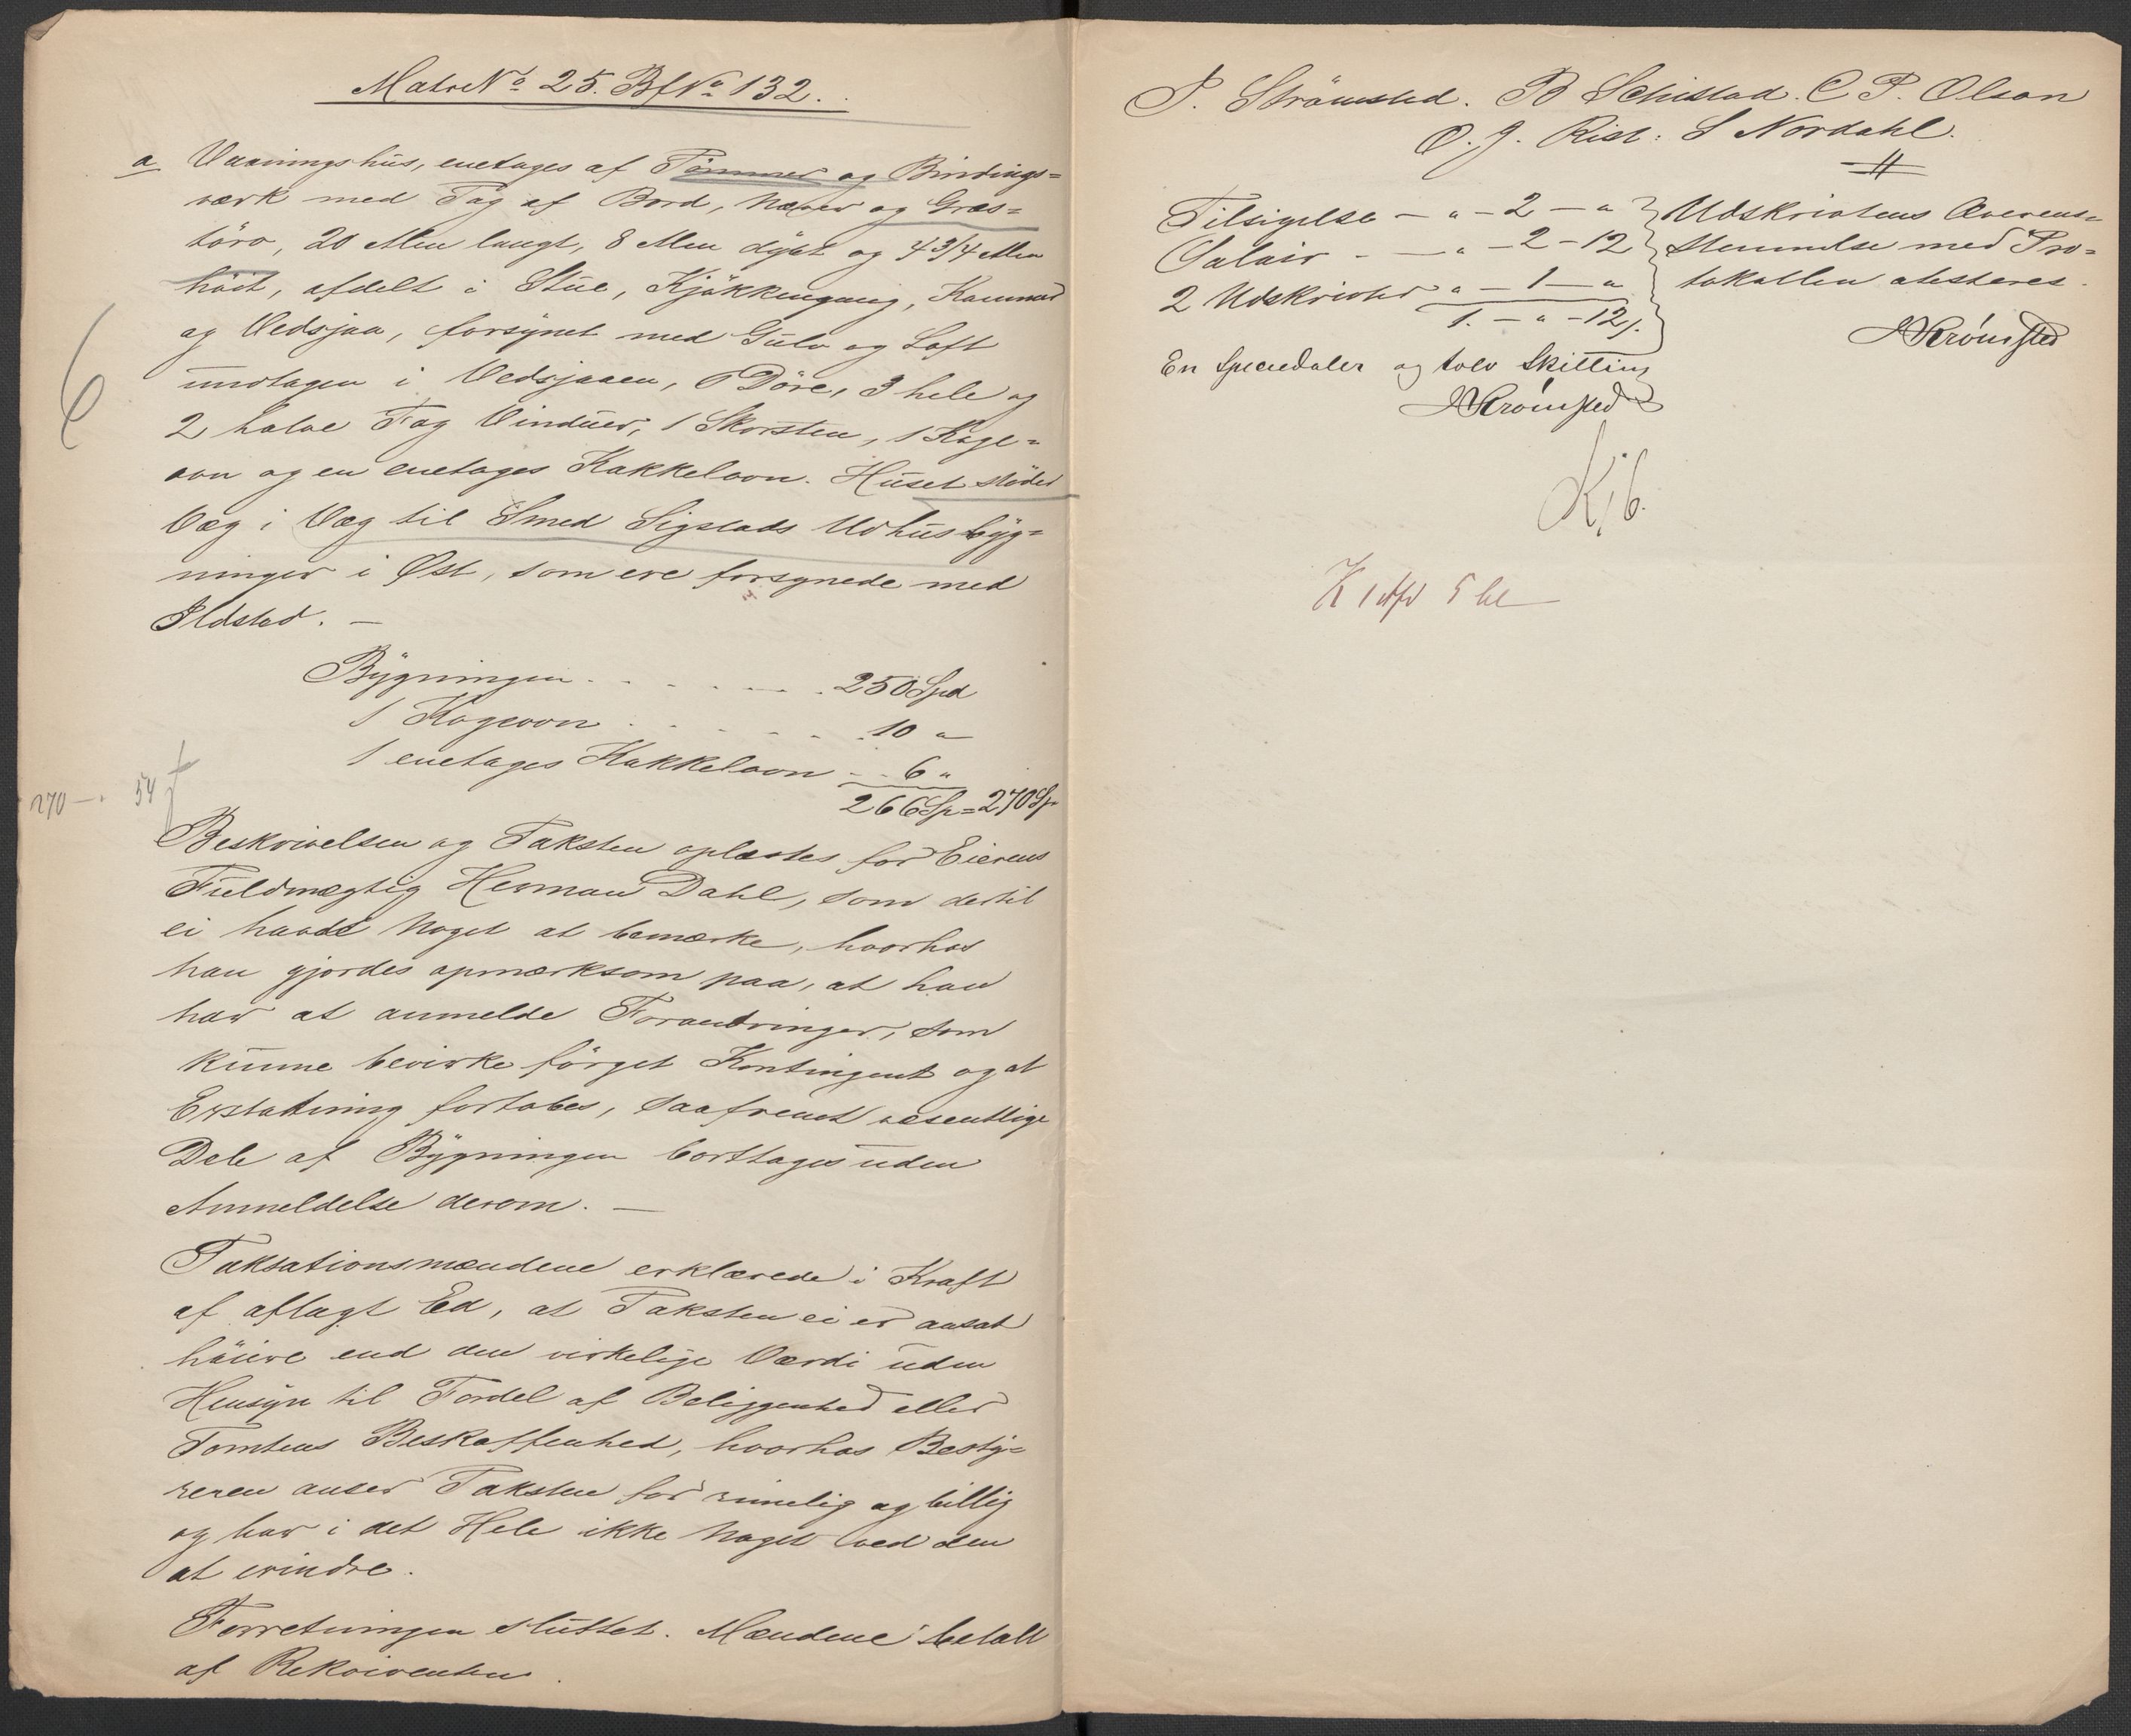 Matr No 25. Bf No 132.
a Vaaningshus, enetages af Tømmer og Bindings=
værk med Tag af Bord, Næver og Græs=
törv, 20 Alen langt, 8 Alen dybt og 4 3/4 Alen
höit, afdelt i Stue, Kjökkengang, Kammer
og Vedsjaa, forsynet med Gulv og Loft
undtagen i Vedsjaaen, 6 Döre, 3 hele og
2 halve Fag Vinduer, 1 Skorsten, 1 Koge=
ovn og en enetages Kakkelovn. Huset stöder
Væg i Væg til Smed Sigstads Udhusbyg=
ninger i Øst, som ere forsynede med
Ildsted. —
Bygningen . . . . . . 250 Spd
1 Kogeovn . . . . . 10 "
1 enetages Kakkelovn - - 6 "
266 Sp = 270 Sp
270 — . 54
Beskrivelsen og Taksten oplæstes for Eierens
Fuldmægtig Herman Dahl, som dertil
ei havde Noget at bemærke, hvorhos
han gjordes opmærksom paa, at han
har at anmelde Forandringer, som
kunne bevirke förget Kontingent og at
Erstatning fortabes, saafremt væsentlige
Dele af Bygningen borttages uden
Anmeldelse derom. —
Taksationsmændene erklærede i Kraft
af aflagt Ed, at Taksten ei er ansat
höiere end den virkelige Værdi uden
Hensyn til Fordel af Beliggenhed eller
Tomtens Beskaffenhed, hvorhos Besty=
reren anser Taksten for rimelig og billig
og har i det Hele ikke Noget ved den
at erindre.
Forretningen sluttet. Mændene betalt
af Rekvirenten.
J. Strömsted. B Schistad. C P. Olson
O. J. Rist: S Nordahl.
Tilsigelse — " — 2 — "
Salair - — " — 2 - 12
2 Udskrivter " — 1 — "
1. — " - 12 s.
Udskrivtens Overens=
stemmelse med Pro=
tokollen atesteres.
JStrömsted
En Speciedaler og tolv Skilling
JStrömsted
Kjb.